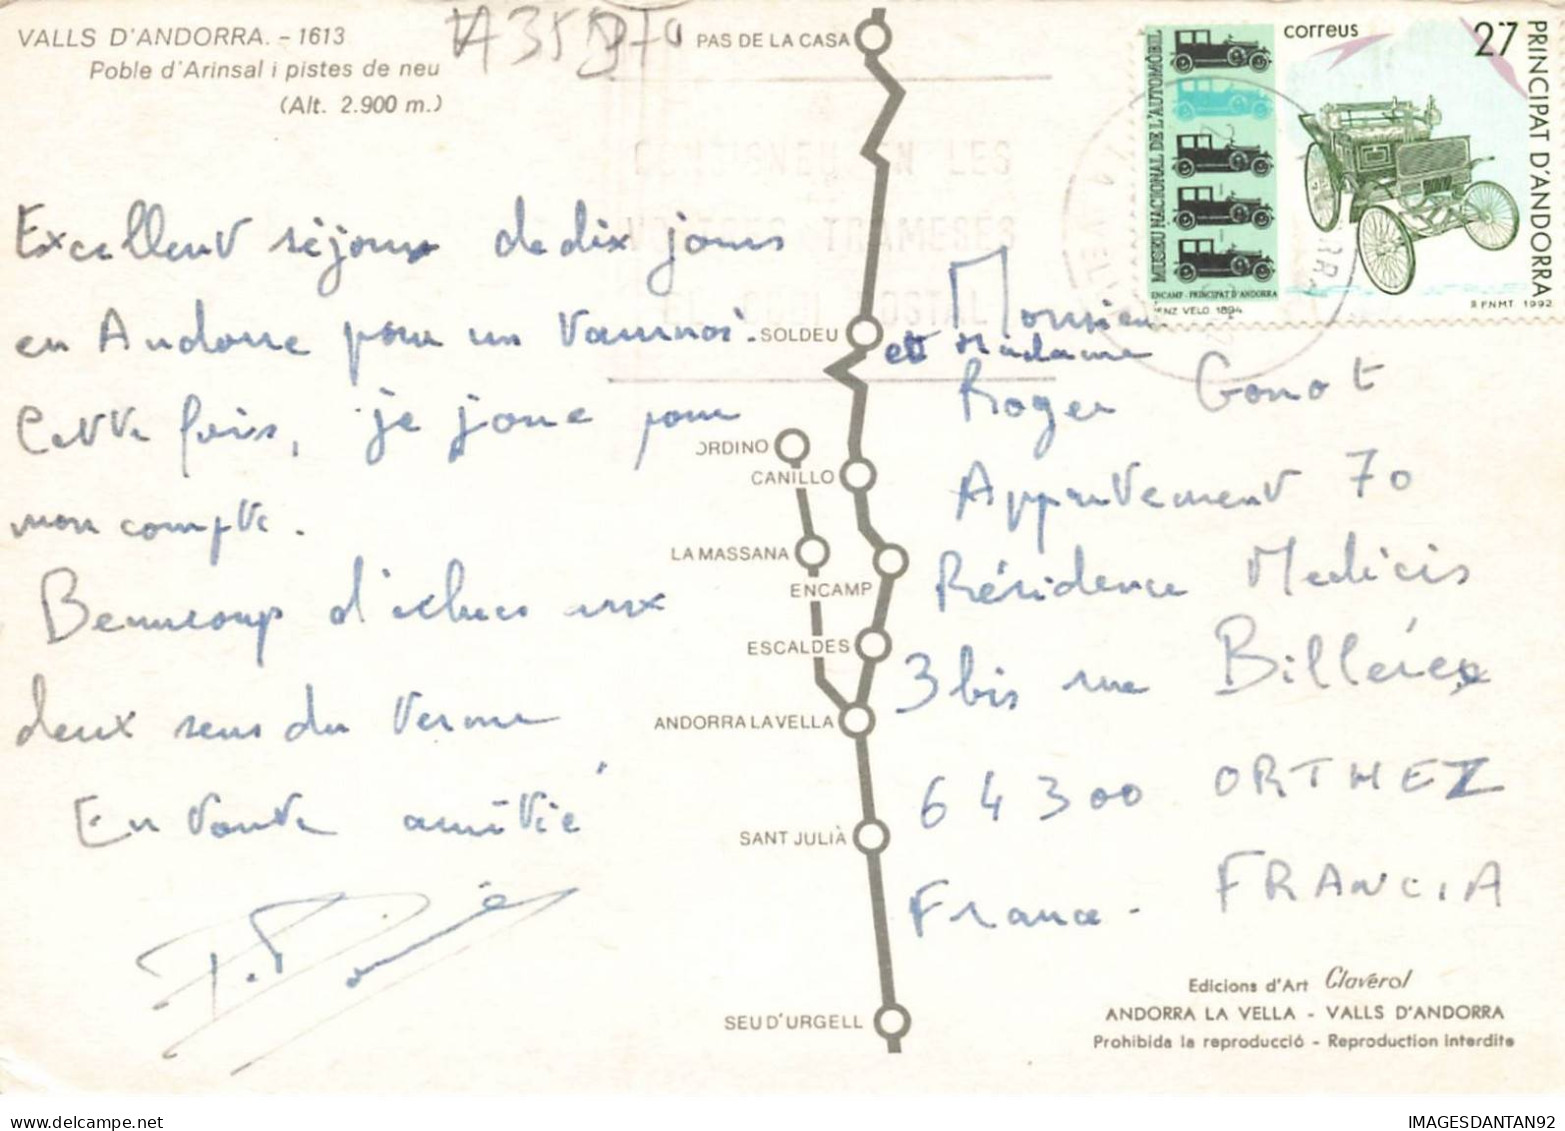 VALLS D'ANDORRA. - 1613
Poble d'Arinsal i pistes de neu
(Alt. 2.900 m.)
Excellent séjour de dix jours
en Andorre pour un tournoi.
Cette fois, je joue pour
mon compte.
Beaucoup d'échecs aux
deux sens du terme
En toute amitié
PAS DE LA CASA
SOLDEU
ORDINO
CANILLO
LA MASSANA
ENCAMP
ESCALDES
ANDORRA LA VELLA
SANT JULIÀ
SEU D'URGELL
CONSIGNEU EN LES
VOSTRES TRAMESES
EL CODI POSTAL
MUSEU NACIONAL DE L'AUTOMÒBIL
ENCAMP - PRINCIPAT D'ANDORRA
ENZ VELO 1894
correus
27
PRINCIPAT D'ANDORRA
R F.N.M.T. 1992
Monsieur
et Madame
Roger Gonot
Appartement 70
Résidence Medicis
3 bis rue Billère
64300 ORTHEZ
France - FRANCIA
Edicions d'Art Claverol
ANDORRA LA VELLA - VALLS D'ANDORRA
Prohibida la reproducció - Reproduction interdite
IMAGESDANTAN92